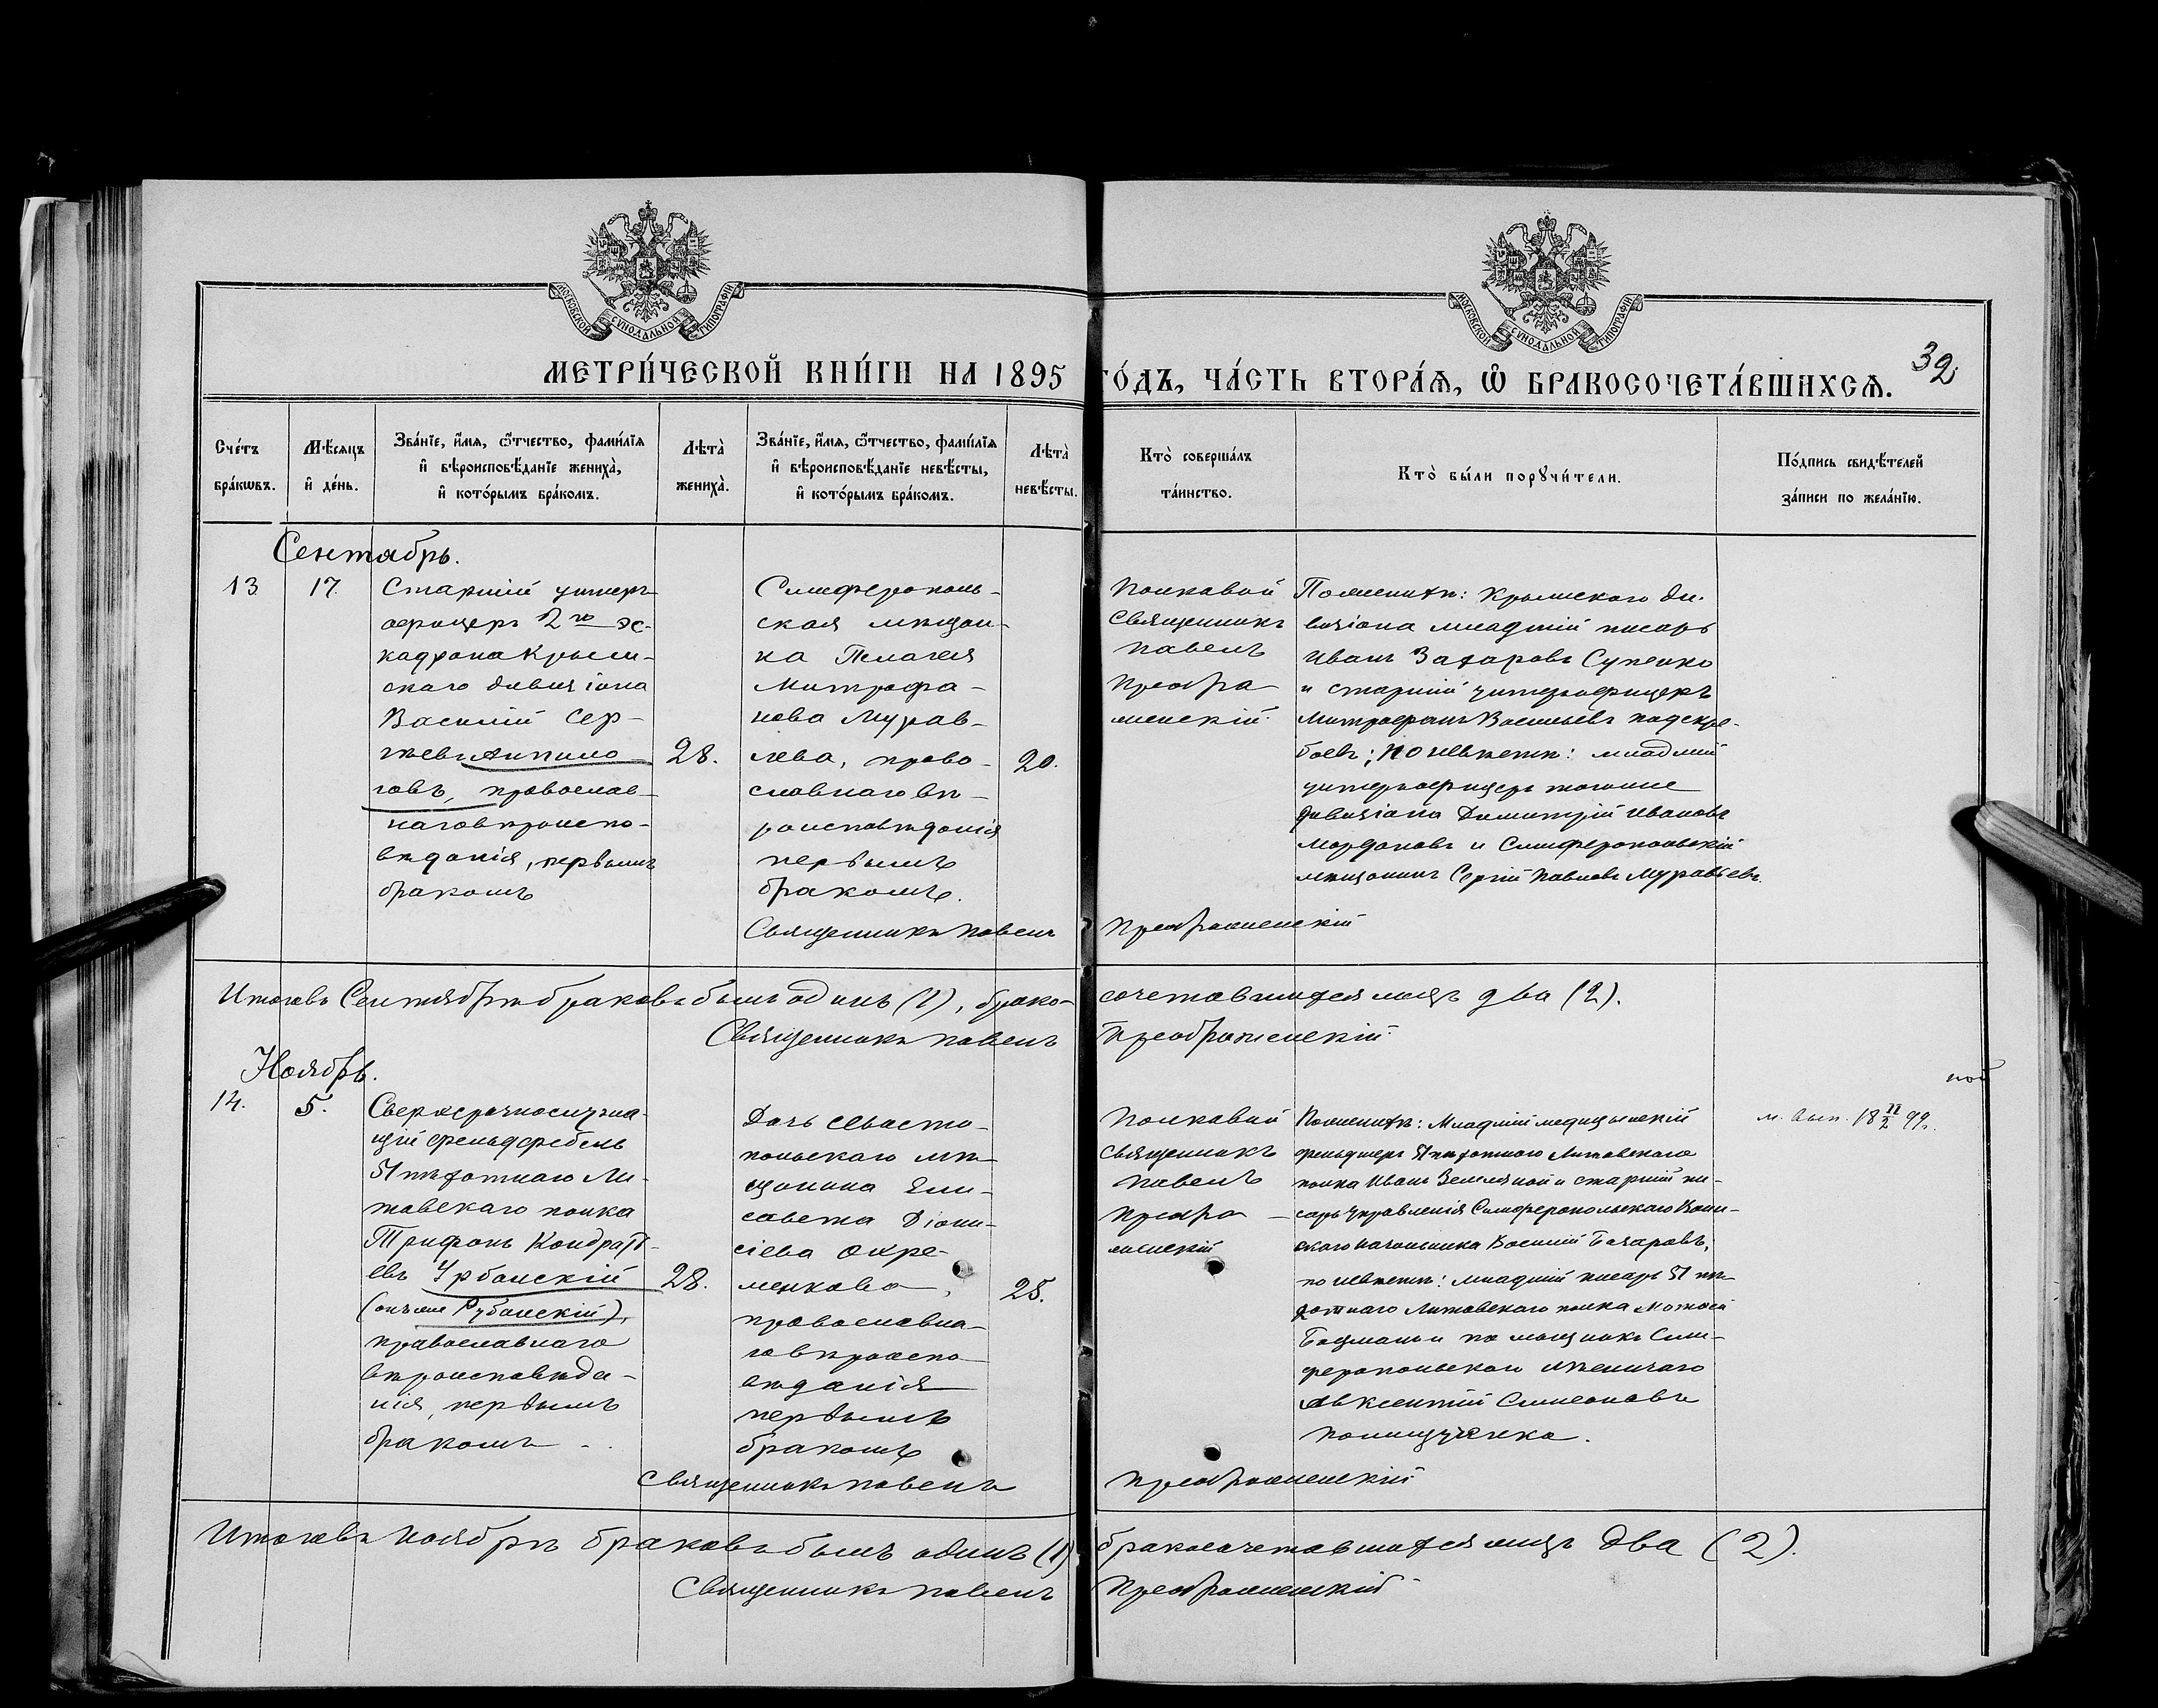 МОСКОВСКОЙ СѴНОДАЛЬНОЙ ТИПОГРАФІИ
МОСКОВСКОЙ СѴНОДАЛЬНОЙ ТИПОГРАФІИ
МЕТРИ́ЧЕСКОЙ КНИ́ГИ НА 1895 ГО́ДЪ, ЧА́СТЬ ВТОРА́Ѧ, Ѡ҆ БРАКОСОЧЕТА́ВШИХСѦ.
32
Сче́тъ бра́кѡвъ.
Мѣ́сяцъ и҆ де́нь.
Зва́нїе, и҆́мѧ, ѻ҆́тчество, фами́лїѧ и҆ вѣроисповѣ́данїе жениха̀, и҆ кото́рымъ бра́комъ.
Лѣта̀ жениха̀.
Зва́нїе, и҆́мѧ, ѻ҆́тчество, фами́лїѧ и҆ вѣроисповѣ́данїе невѣ́сты, и҆ кото́рымъ бра́комъ.
Лѣта̀ невѣ́сты.
Кто̀ соверша́лъ та́инство.
Кто̀ бы́ли порꙋчи́тели.
По́дпись свидѣ́телей за́писи по жела́нїю.
Сентябрь.
13
17.
Старшій унтеръ-
офицеръ 2го эс-
кадрона Крым-
скаго дивизіона
Василій Сер-
гѣевъ Анпило-
говъ, православ-
наго вѣроиспо-
вѣданія, первымъ
бракомъ
28.
Симферополь-
ская мѣщан-
ка Пелагея
Митрофа-
нова Мурав-
лева, право-
славнаго вѣ-
роисповѣданія
первымъ
бракомъ.
20.
Полковой
Священникъ
Павелъ
Преобра-
женскій.
По женихѣ: Крымскаго ди-
визіона младшій писарь
Иванъ Захаровъ Супенко
и старшій унтерофицеръ
Митрофанъ Васильевъ
по невѣстѣ: младшій
унтерофицеръ тогоже
дивизіона Димитрій Ивановъ
Мордановъ и Симферопольскій
мѣщанинъ Сергій Павловъ Муравьевъ.
Священникъ Павелъ Преображенскій
Итого въ Сентябрѣ браковъ былъ одинъ (1), брако-сочетавшихся лицъ два (2).
Священникъ Павелъ Преображенскій.
Ноябрь.
14.
5.
Сверхсрочнослужа-
щій фельдфебель
51 пѣхотнаго Ли-
товскаго полка
Трифонъ Кондратъ-
евъ Урбанскій
(онъ же Рубанскій),
православнаго
вѣроисповѣда-
нія, первымъ
бракомъ
28.
Дочь Севасто-
польскаго мѣ-
щанина Ели-
савета Діони-
сіева Охре-
менкова,
православна-
го вѣроиспо-
вѣданія
первымъ
бракомъ
25.
Полковой
священникъ
Павелъ
Преобра-
женскій
По женихѣ: Младшій медицинскій
фельдшеръ 51 пѣхотнаго Литовскаго
полка Иванъ Земляной и старшій пи-
сарь Управленія Симферопольскаго Воин-
скаго Начальника Василій Бахаровъ;
по невѣстѣ: младшій писарь 51 пѣ-
хотнаго Литовскаго полка
Боцманъ и помощникъ Сим-
феропольскаго
Авксентій Симеоновъ
Полищученко.
м. вып. 18 11/2 99г.
Священникъ Павелъ Преображенскій
Итого въ Ноябрѣ браковъ былъ одинъ (1) бракосочетавшихся лицъ два (2).
Священникъ Павелъ Преображенскій